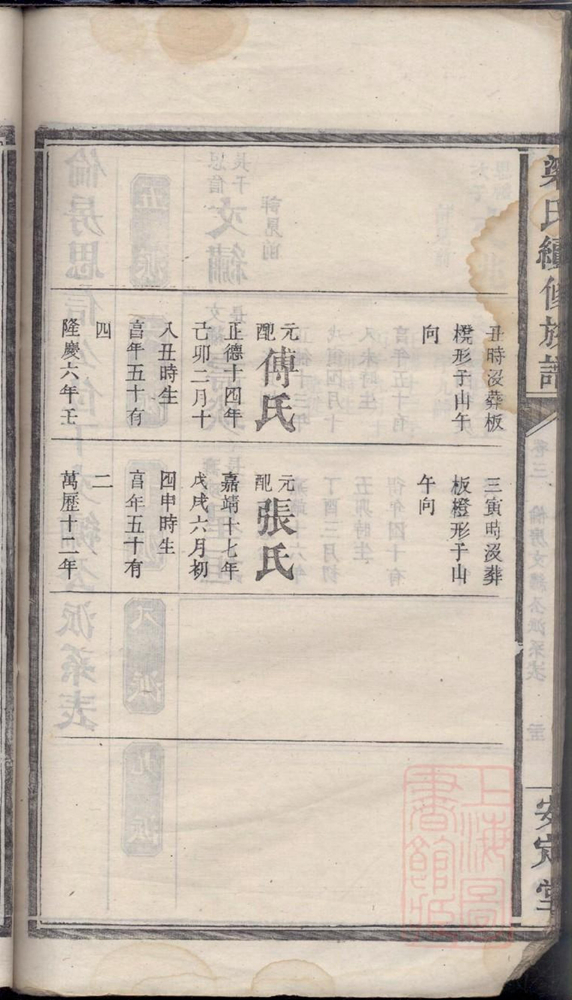 梁氏續修族譜
丑時沒葬板
橙形子山午
向
元
配
傅氏
正德十四年
己卯二月十
八丑時生
亯年五十有
四
隆慶六年壬
三寅時沒葬
板橙形子山
午向
元
配
張氏
嘉靖十七年
戊戌六月初
四申時生
亯年五十有
二
萬歷十二年
卷三
倫房文繡公派系表
安定堂
上海圖書館藏